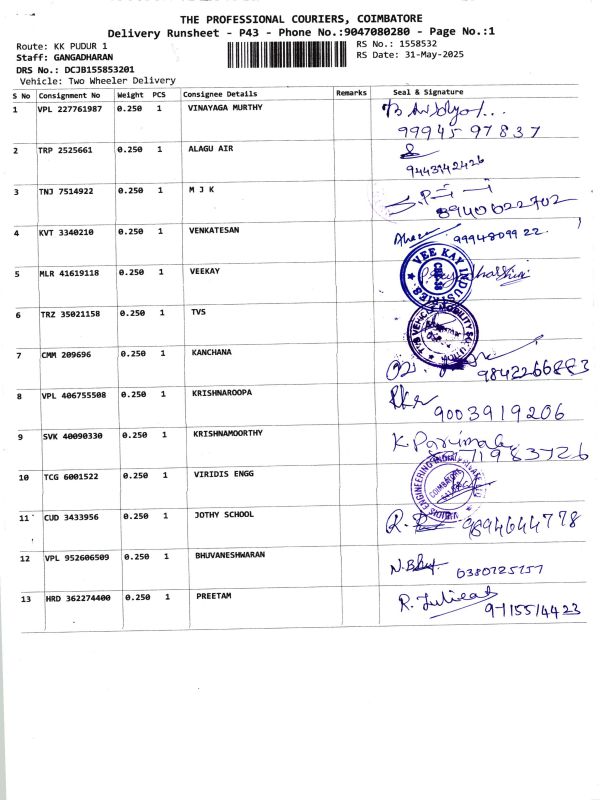 THE PROFESSIONAL COURIERS, COIMBATORE
Delivery Runsheet - P43 - Phone No.:9047080280 - Page No.:1
Route: KK PUDUR 1 RS No.: 1558532
Staff: GANGADHARAN RS Date: 31-May-2025
DRS No.: DCJB155853201
Vehicle: Two Wheeler Delivery
S No Consignment No Weight PCS Consignee Details Remarks Seal & Signature
1 VPL 227761987 0.250 1 VINAYAGA MURTHY
99945 97837
2 TRP 2525661 0.250 1 ALAGU AIR
9443742426
3 TNJ 7514922 0.250 1 M J K
8940622702
4 KVT 3340210 0.250 1 VENKATESAN
9994809922.
5 MLR 41619118 0.250 1 VEEKAY VEE KAY INDUSTRIES
6 TRZ 35021158 0.250 1 TVS TVS VEHICLE MOBILITY
7 CMM 209696 0.250 1 KANCHANA
9842266883
8 VPL 406755508 0.250 1 KRISHNAROOPA
9003919206
9 SVK 40090330 0.250 1 KRISHNAMOORTHY K Parimala
10 TCG 6001522 0.250 1 VIRIDIS ENGG VIRIDIS ENGINEERING INDIA COIMBATORE
11 CUD 3433956 0.250 1 JOTHY SCHOOL 9894644778
12 VPL 952606509 0.250 1 BHUVANESHWARAN
13 HRD 362274400 0.250 1 PREETAM